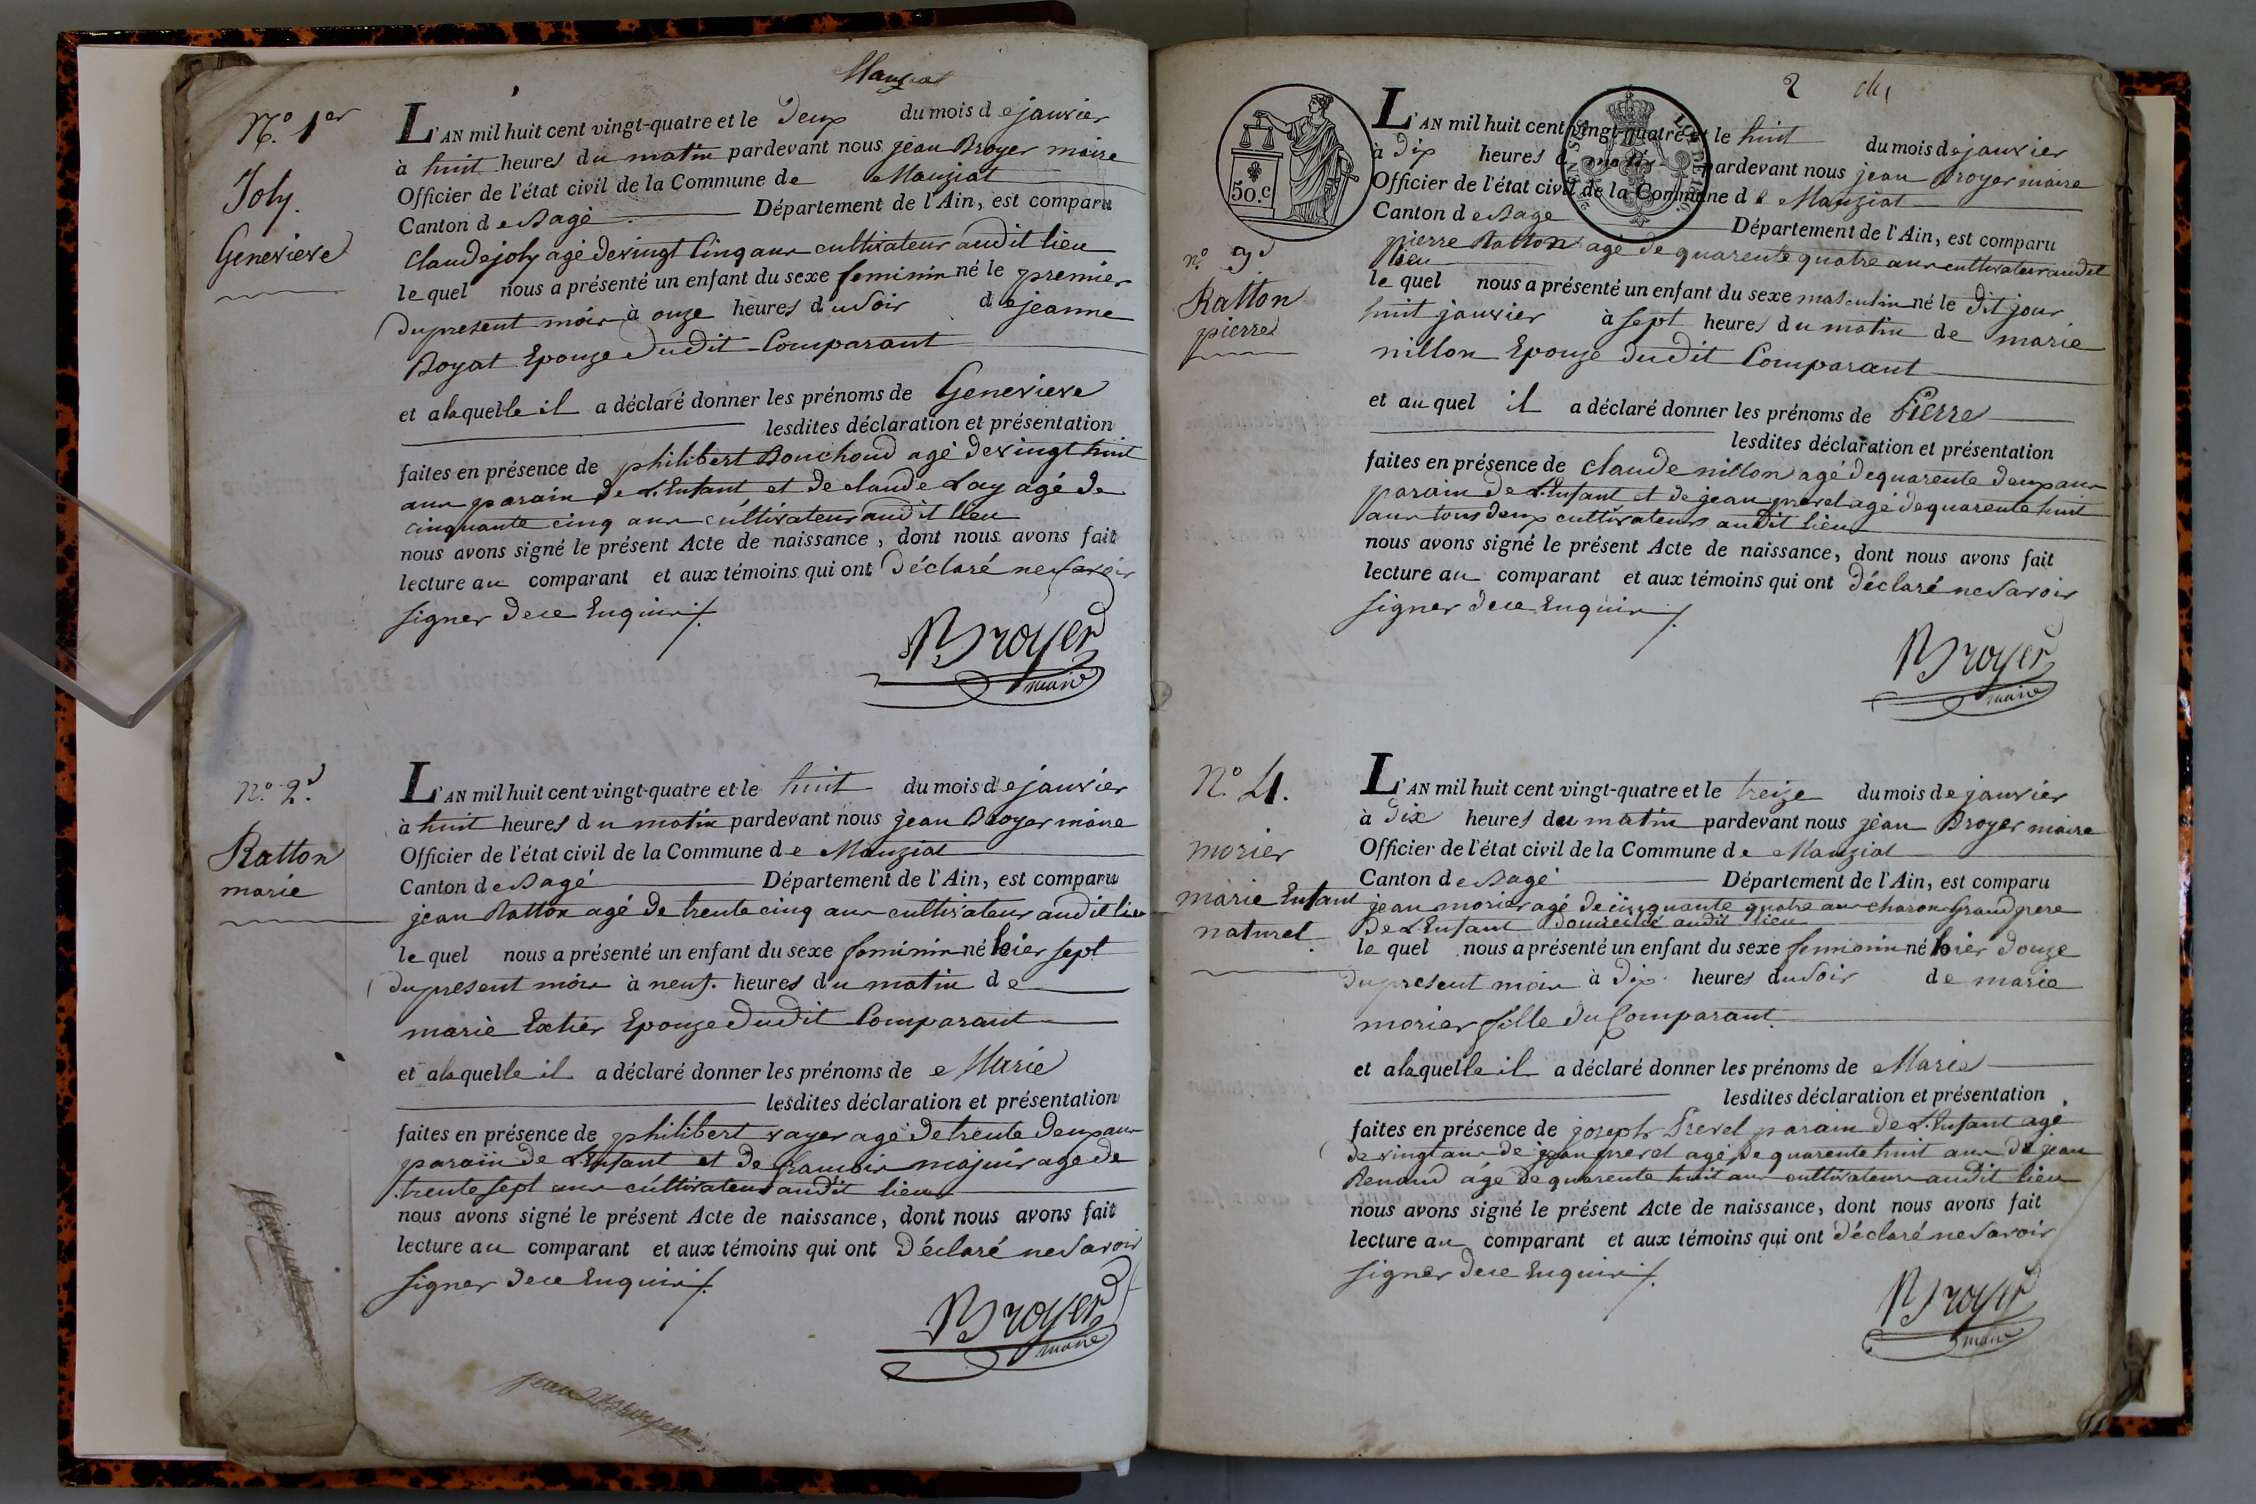 Manziat
N.º 1er
Joly.
Genevieve
L'AN mil huit cent vingt-quatre et le deux du mois de janvier
à huit heures du matin pardevant nous jean Broyer maire
Officier de l'état civil de la Commune de Manziat
Canton de Bagé Département de l'Ain, est comparu
claude joly agé de vingt Cinq ans cultivateur audit lieu
le quel nous a présenté un enfant du sexe feminin né le premier
du present mois à onze heures du soir de jeanne
Boyat Epouze dudit Comparant
et a laquelle il a déclaré donner les prénoms de Genevieve
lesdites déclaration et présentation
faites en présence de philibert Bouchoud agé de vingt huit
ans parain de L'Enfant et de claude Lay agé de
cinquante cinq ans cultivateurs audit lieu
nous avons signé le présent Acte de naissance, dont nous avons fait
lecture au comparant et aux témoins qui ont déclaré ne savoir
signer de ce Enquiri /.
Broyer
maire
N.º 2d.
Ratton
marie
L'AN mil huit cent vingt-quatre et le huit du mois de janvier
à huit heures du matin pardevant nous jean Broyer maire
Officier de l'état civil de la Commune de Manziat
Canton de Bagé Département de l'Ain, est comparu
jean Ratton agé de trente cinq ans cultivateur audit lieu
le quel nous a présenté un enfant du sexe feminin né hier sept
du present mois à neuf heures du matin de
marie Extier Epouze dudit Comparant
et a laquelle il a déclaré donner les prénoms de Marie
lesdites déclaration et présentation
faites en présence de philibert rayer agé de trente deux ans
parain de L'Enfant et de francois agé de
trente sept ans cultivateurs audit lieu
nous avons signé le présent Acte de naissance, dont nous avons fait
lecture au comparant et aux témoins qui ont déclaré ne savoir
signer de ce Enquiri /.
Broyer
maire
2
50.c
n.º 3e
Ratton
pierre
L'AN mil huit cent vingt-quatre et le huit du mois de janvier
à dix heures du matin pardevant nous jean Broyer maire
Officier de l'état civil de la Commune de Manziat
Canton de Bagé Département de l'Ain, est comparu
pierre Ratton agé de quarente quatre ans cultivateur audit
lieu
le quel nous a présenté un enfant du sexe masculin né le dit jour
huit janvier à sept heures du matin de marie
nillon Epouze dudit Comparant
et au quel il a déclaré donner les prénoms de Pierre
lesdites déclaration et présentation
faites en présence de claude nillon agé de quarente deux ans
parain de L'Enfant et de jean prevel agé de quarente huit
ans tous deux cultivateurs audit lieu
nous avons signé le présent Acte de naissance, dont nous avons fait
lecture au comparant et aux témoins qui ont déclaré ne savoir
signer de ce Enquiri /.
Broyer
maire
N.º 4.
morier
marie Enfant
naturel
L'AN mil huit cent vingt-quatre et le treize du mois de janvier
à dix heures du matin pardevant nous jean Broyer maire
Officier de l'état civil de la Commune de Manziat
Canton de Bagé Département de l'Ain, est comparu
jean morier agé de cinquante quatre ans charon Grand pere
de L'Enfant domicilié audit lieu
le quel nous a présenté un enfant du sexe feminin né hier douze
du present mois à dix heures du soir de marie
morier fille du Comparant
et a laquelle il a déclaré donner les prénoms de Marie
lesdites déclaration et présentation
faites en présence de joseph Prevel parain de L'Enfant agé
de vingt ans de jean prevel agé de quarente huit ans de jean
Renaud agé de quarente huit ans cultivateurs audit lieu
nous avons signé le présent Acte de naissance, dont nous avons fait
lecture au comparant et aux témoins qui ont déclaré ne savoir
signer de ce Enquiri /.
Broyer
maire